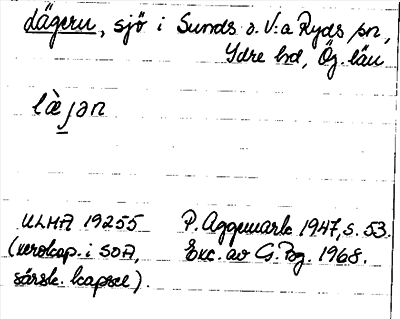 Lägern, sjö i Sunds o. V:a Ryds sn,
Ydre hd, Ög. län
læ̀jən
ULMA 19255 P. Aggemark 1947, s. 53.
(xerokop. i SOA, Exc. av G. Bg. 1968.
särsk. kapsel).